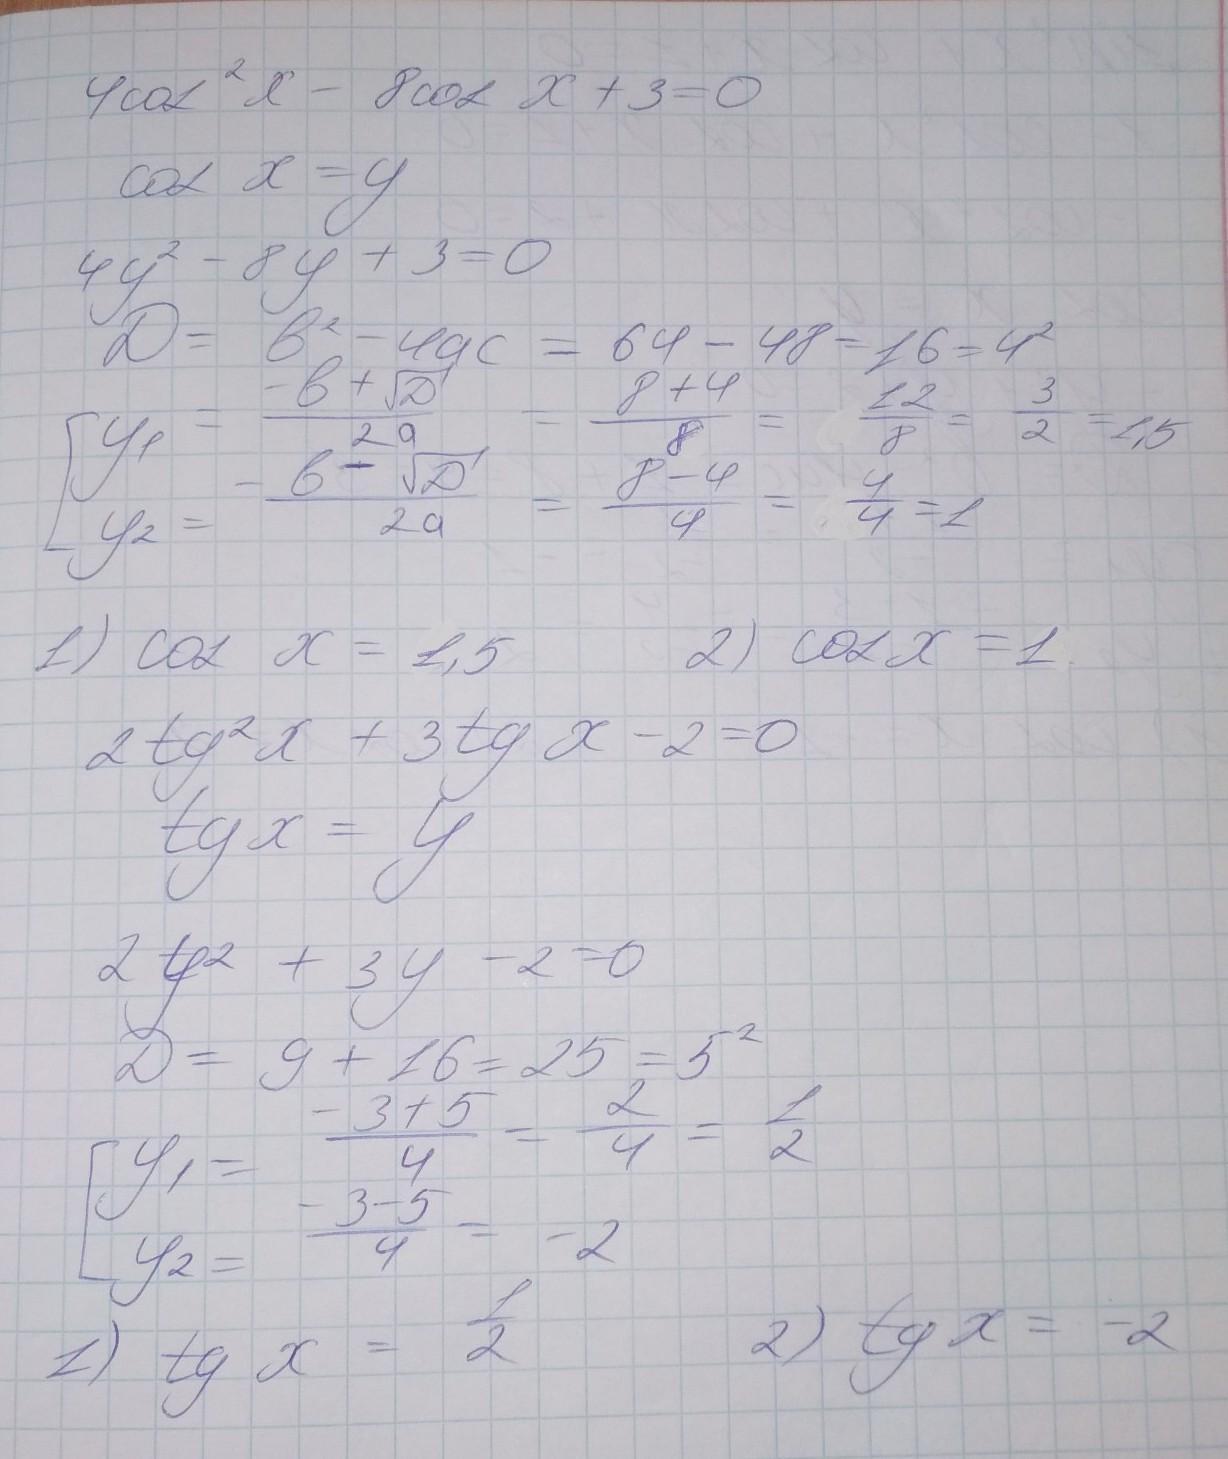 4cos²x - 8cos x + 3 = 0
cos x = y
4y² - 8y + 3 = 0
D = b² - 4ac = 64 - 48 = 16 = 4²
y₁ = (-b + √D)/(2a) = (8 + 4)/8 = 12/8 = 3/2 = 1,5
y₂ = (-b - √D)/(2a) = (8 - 4)/4 = 4/4 = 1
1) cos x = 1,5 2) cos x = 1
2tg²x + 3tg x - 2 = 0
tg x = y
2y² + 3y - 2 = 0
D = 9 + 16 = 25 = 5²
y₁ = (-3 + 5)/4 = 2/4 = 1/2
y₂ = (-3 - 5)/4 = -2
1) tg x = 1/2 2) tg x = -2